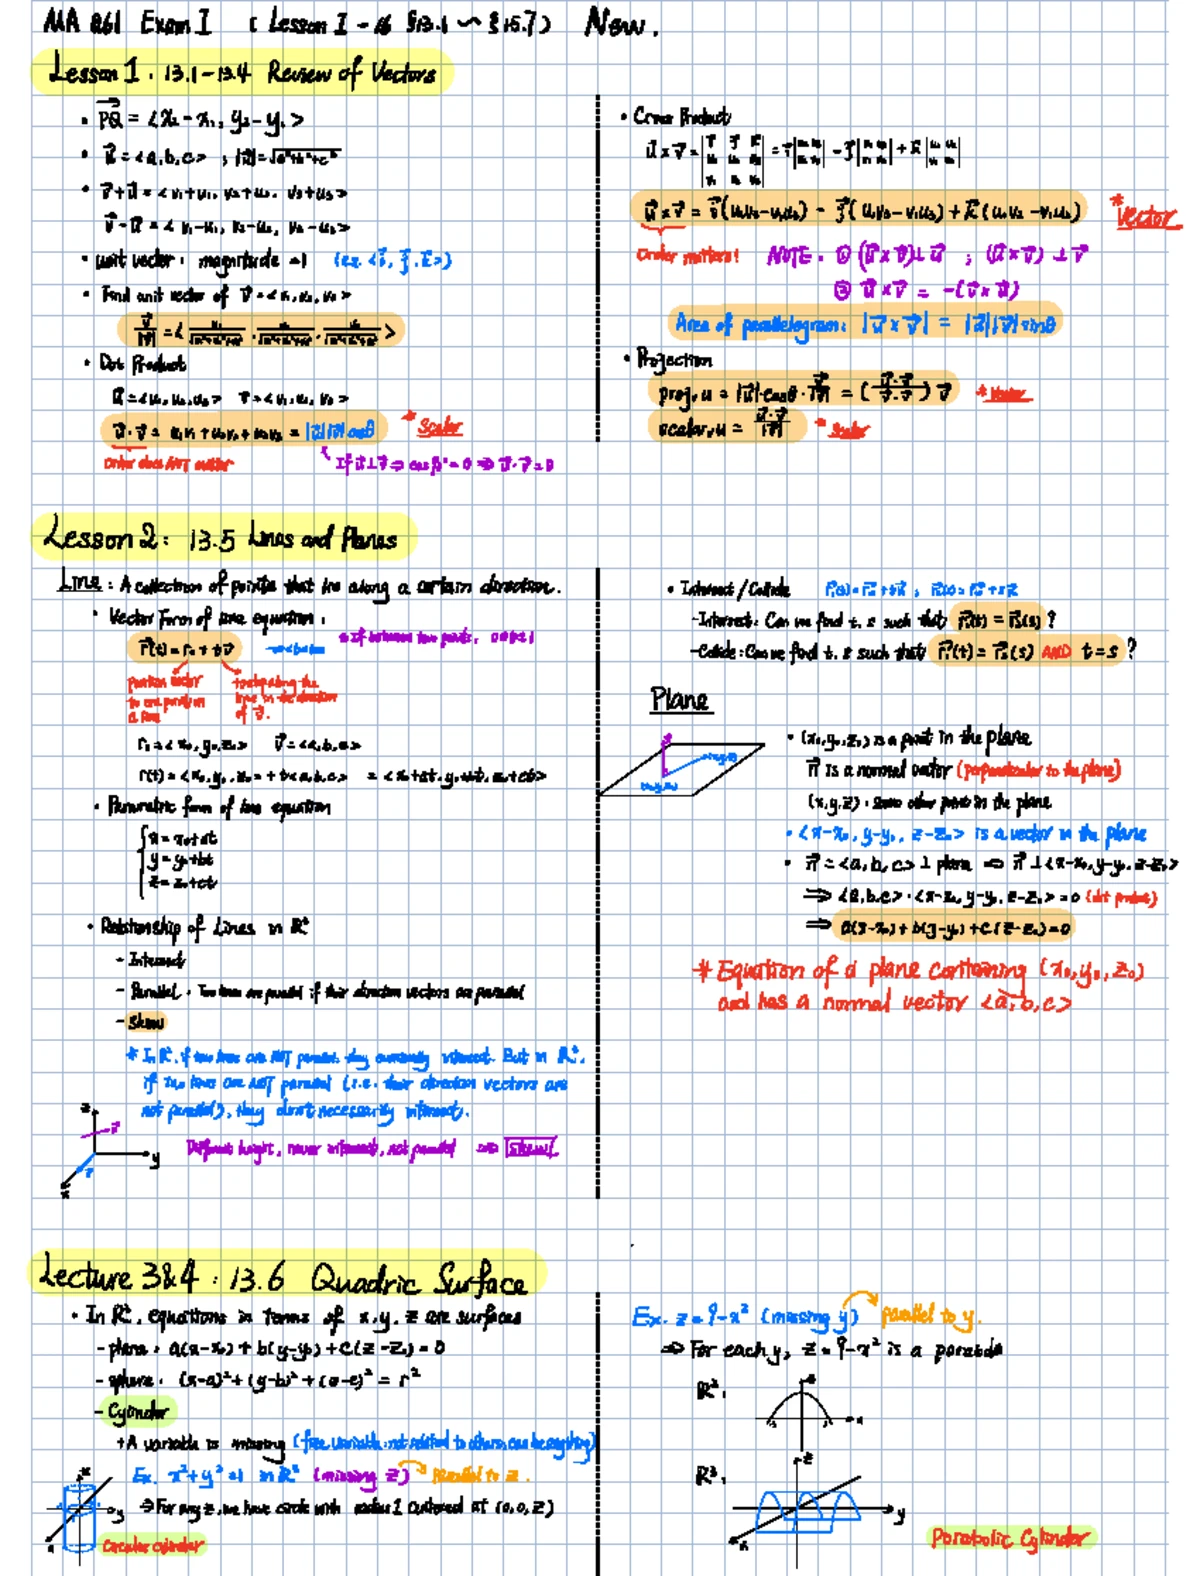 MA 261 Exam I ( Lesson I - 16 §13.1 ~ §15.7) New.
Lesson 1 . 13.1-13.4 Review of Vectors
• PQ⃗ = <x₂-x₁, y₂-y₁>
• u⃗ = <a,b,c> ; |u⃗| = √(a²+b²+c²)
• v⃗+u⃗ = <v₁+u₁, v₂+u₂, v₃+u₃>
v⃗-u⃗ = < v₁-u₁, v₂-u₂, v₃-u₃>
• unit vector : magnitude =1 (ex. <i⃗, j⃗, k⃗>)
• Find unit vector of v⃗ = <v₁, v₂, v₃>
• Dot Product
u⃗ = <u₁, u₂, u₃> v⃗ = <v₁, v₂, v₃>
u⃗ · v⃗ = u₁v₁ + u₂v₂ + u₃v₃ = |u⃗||v⃗| cosθ * Scalar
Order does NOT matter
• Cross Product
u⃗ x v⃗ = i⃗(u₂v₃-v₂u₃) - j⃗(u₁v₃-v₁u₃) + k⃗(u₁v₂-v₁u₂) * Vector
Order matters! NOTE . ① (u⃗ x v⃗)⊥ u⃗ ; (u⃗ x v⃗) ⊥ v⃗
② u⃗ x v⃗ = -(v⃗ x u⃗)
Area of parallelogram: |u⃗ x v⃗| = |u⃗||v⃗| sinθ
• Projection
proj_v u = |u⃗|·cosθ · v⃗/|v⃗| = (u⃗·v⃗/v⃗·v⃗) v⃗ * Vector
scalar_v u = u⃗·v⃗/|v⃗| * Scalar
Lesson 2 : 13.5 Lines and Planes
Line : A collection of points that lie along a certain direction.
• Vector Form of line equation :
r⃗(t) = r₀ + tv⃗
position vector
to one point on
a line
the direction
of v⃗.
r₀ = < x₀, y₀, z₀> v⃗ = <a, b, c>
r(t) = <x₀, y₀, z₀> + t<a, b, c> = <x₀+at, y₀+bt, z₀+ct>
• Parametric form of line equation
x = x₀+at
y = y₀+bt
z = z₀+ct
• Relationship of Lines in R³
- Intersect
- Parallel . Two lines are parallel if their direction vectors are parallel
- Skew
* In R², if two lines are NOT parallel, they eventually intersect. But in R³,
if two lines are NOT parallel (i.e. their direction vectors are
not parallel), they don't necessarily intersect.
z
y
x
Different height, never intersect, not parallel ⇒ skew!
• Intersect / Collide
-Intersect: Can we find t, s such that r⃗₁(t) = r⃗₂(s) ?
-Collide: Can we find t, s such that r⃗₁(t) = r⃗₂(s) AND t=s ?
Plane
• (x₀,y₀,z₀) is a point in the plane
n⃗ is a normal vector (perpendicular to the plane)
(x,y,z) . some other point in the plane
• <x-x₀, y-y₀, z-z₀> is a vector in the plane
• n⃗ = <a, b, c> ⊥ plane ⇒ n⃗ ⊥ <x-x₀, y-y₀, z-z₀>
⇒ <a,b,c> · <x-x₀, y-y₀, z-z₀> = 0 (dot product)
⇒ a(x-x₀) + b(y-y₀) + c(z-z₀) = 0
* Equation of a plane containing (x₀, y₀, z₀)
and has a normal vector <a, b, c>
Lecture 3&4 : 13.6 Quadric Surface
• In R³, equations in terms of x, y, z are surfaces
- plane : a(x-x₀) + b(y-y₀) + c(z-z₀) = 0
- sphere . (x-a)² + (y-b)² + (z-c)² = r²
- Cylinder
+ A variable is missing (free variable: not related to others, can be anything)
Ex. x²+y²=1 in R³ (missing z) parallel to z .
⇒ For any z, we have circle with radius 1 centered at (0,0,z)
y
x
Circular cylinder
Ex. z = 9-x² (missing y) parallel to y.
⇒ For each y, z = 9-x² is a parabola
R²,
z
x
R³,
z
y
x
Parabolic Cylinder